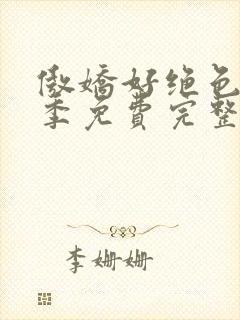 傲娇好绝色
季免费完整
李姗姗